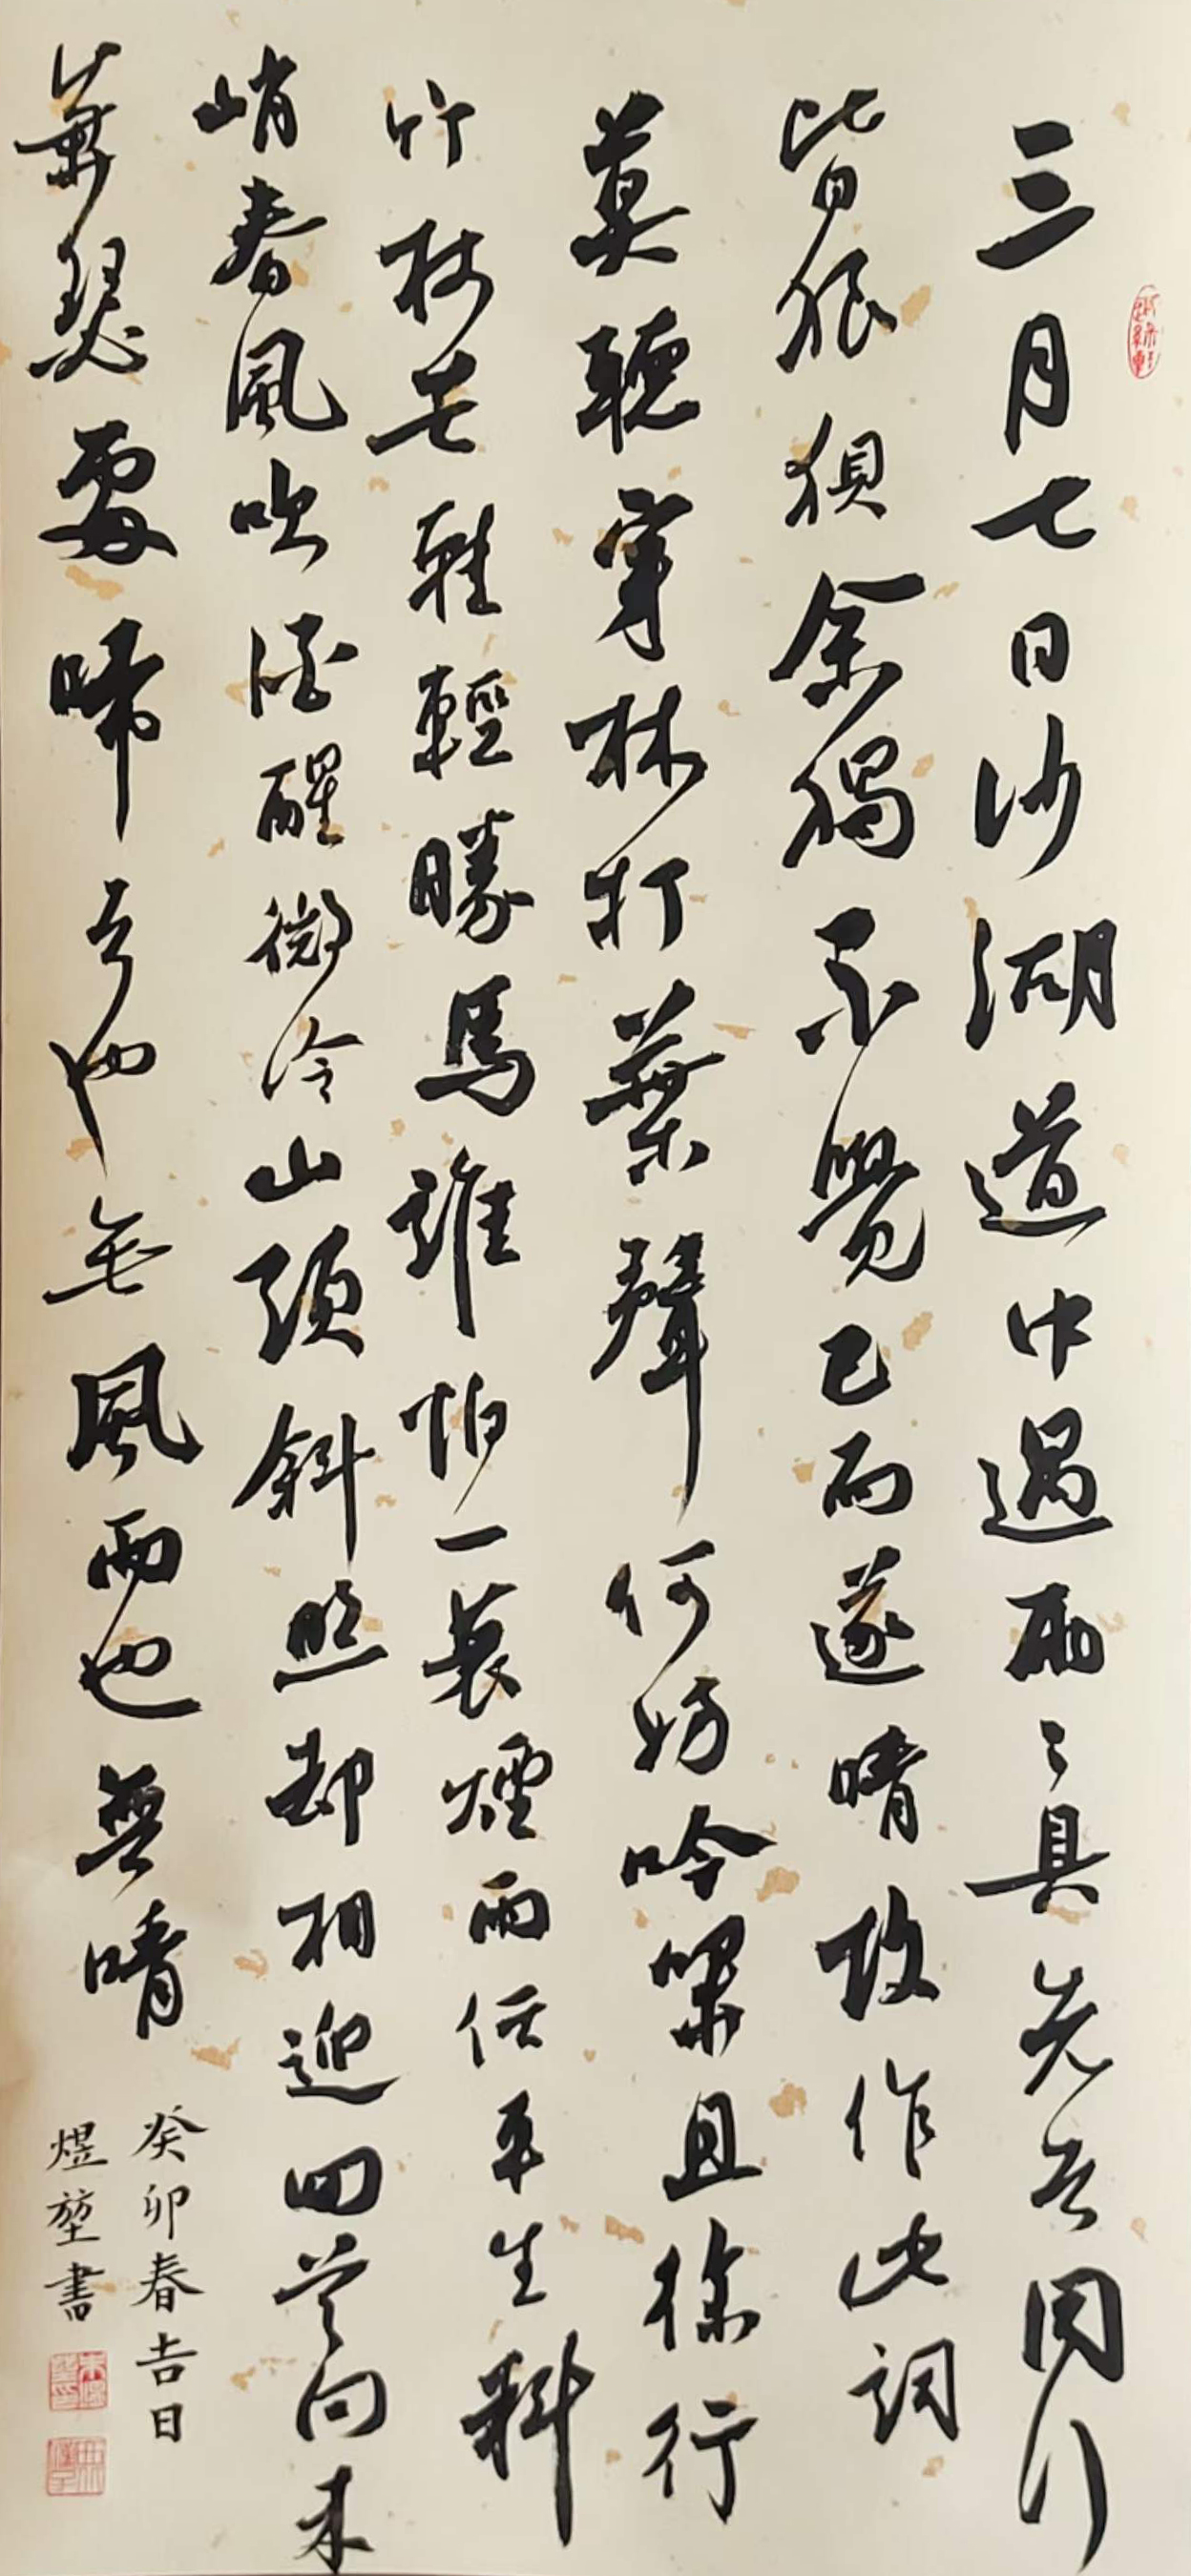 三月七日沙湖道中遇雨々具先去同行
皆狼狽余獨不覺已而遂晴故作此詞
莫聽穿林打葉聲何妨吟嘯且徐行
竹杖芒鞋輕勝馬誰怕一蓑煙雨任平生料
峭春風吹酒醒微冷山頭斜照却相迎回首向来
蕭瑟處歸去也無風雨也無晴
癸卯春吉日
煜堃書